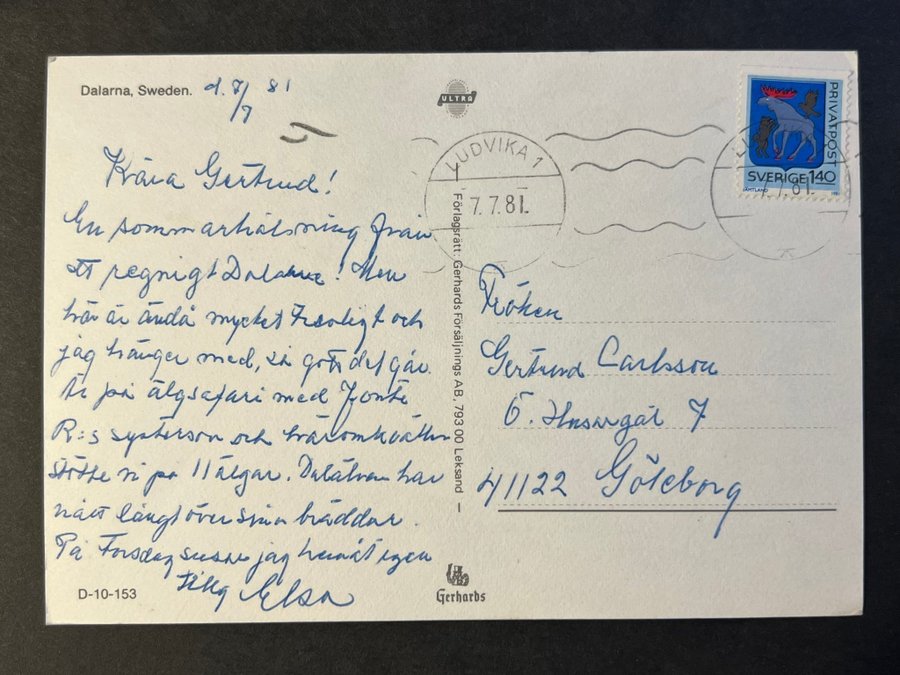 Dalarna, Sweden. d. 7/7 81
ULTRA
Kära Gertrud!
En sommarhälsning från
ett regnigt Dalarne! Men
här är ändå mycket trevligt och
jag hänger med, så gott det går.
är på älgsafari med
R:s systerson och häromkvällen
stötte vi på 11 älgar. Dalälven har
nått långt över sina bräddar.
På Torsdag susar jag hemåt igen
Elsa
D-10-153
LUDVIKA 1
7.7.81
PRIVATPOST
SVERIGE 140
JÄMTLAND
Förlagsrätt: Gerhards Försäljnings AB, 793 00 Leksand
Fröken
Gertrud Carlsson
Ö. Husargat 7
41122 Göteborg
Gerhards